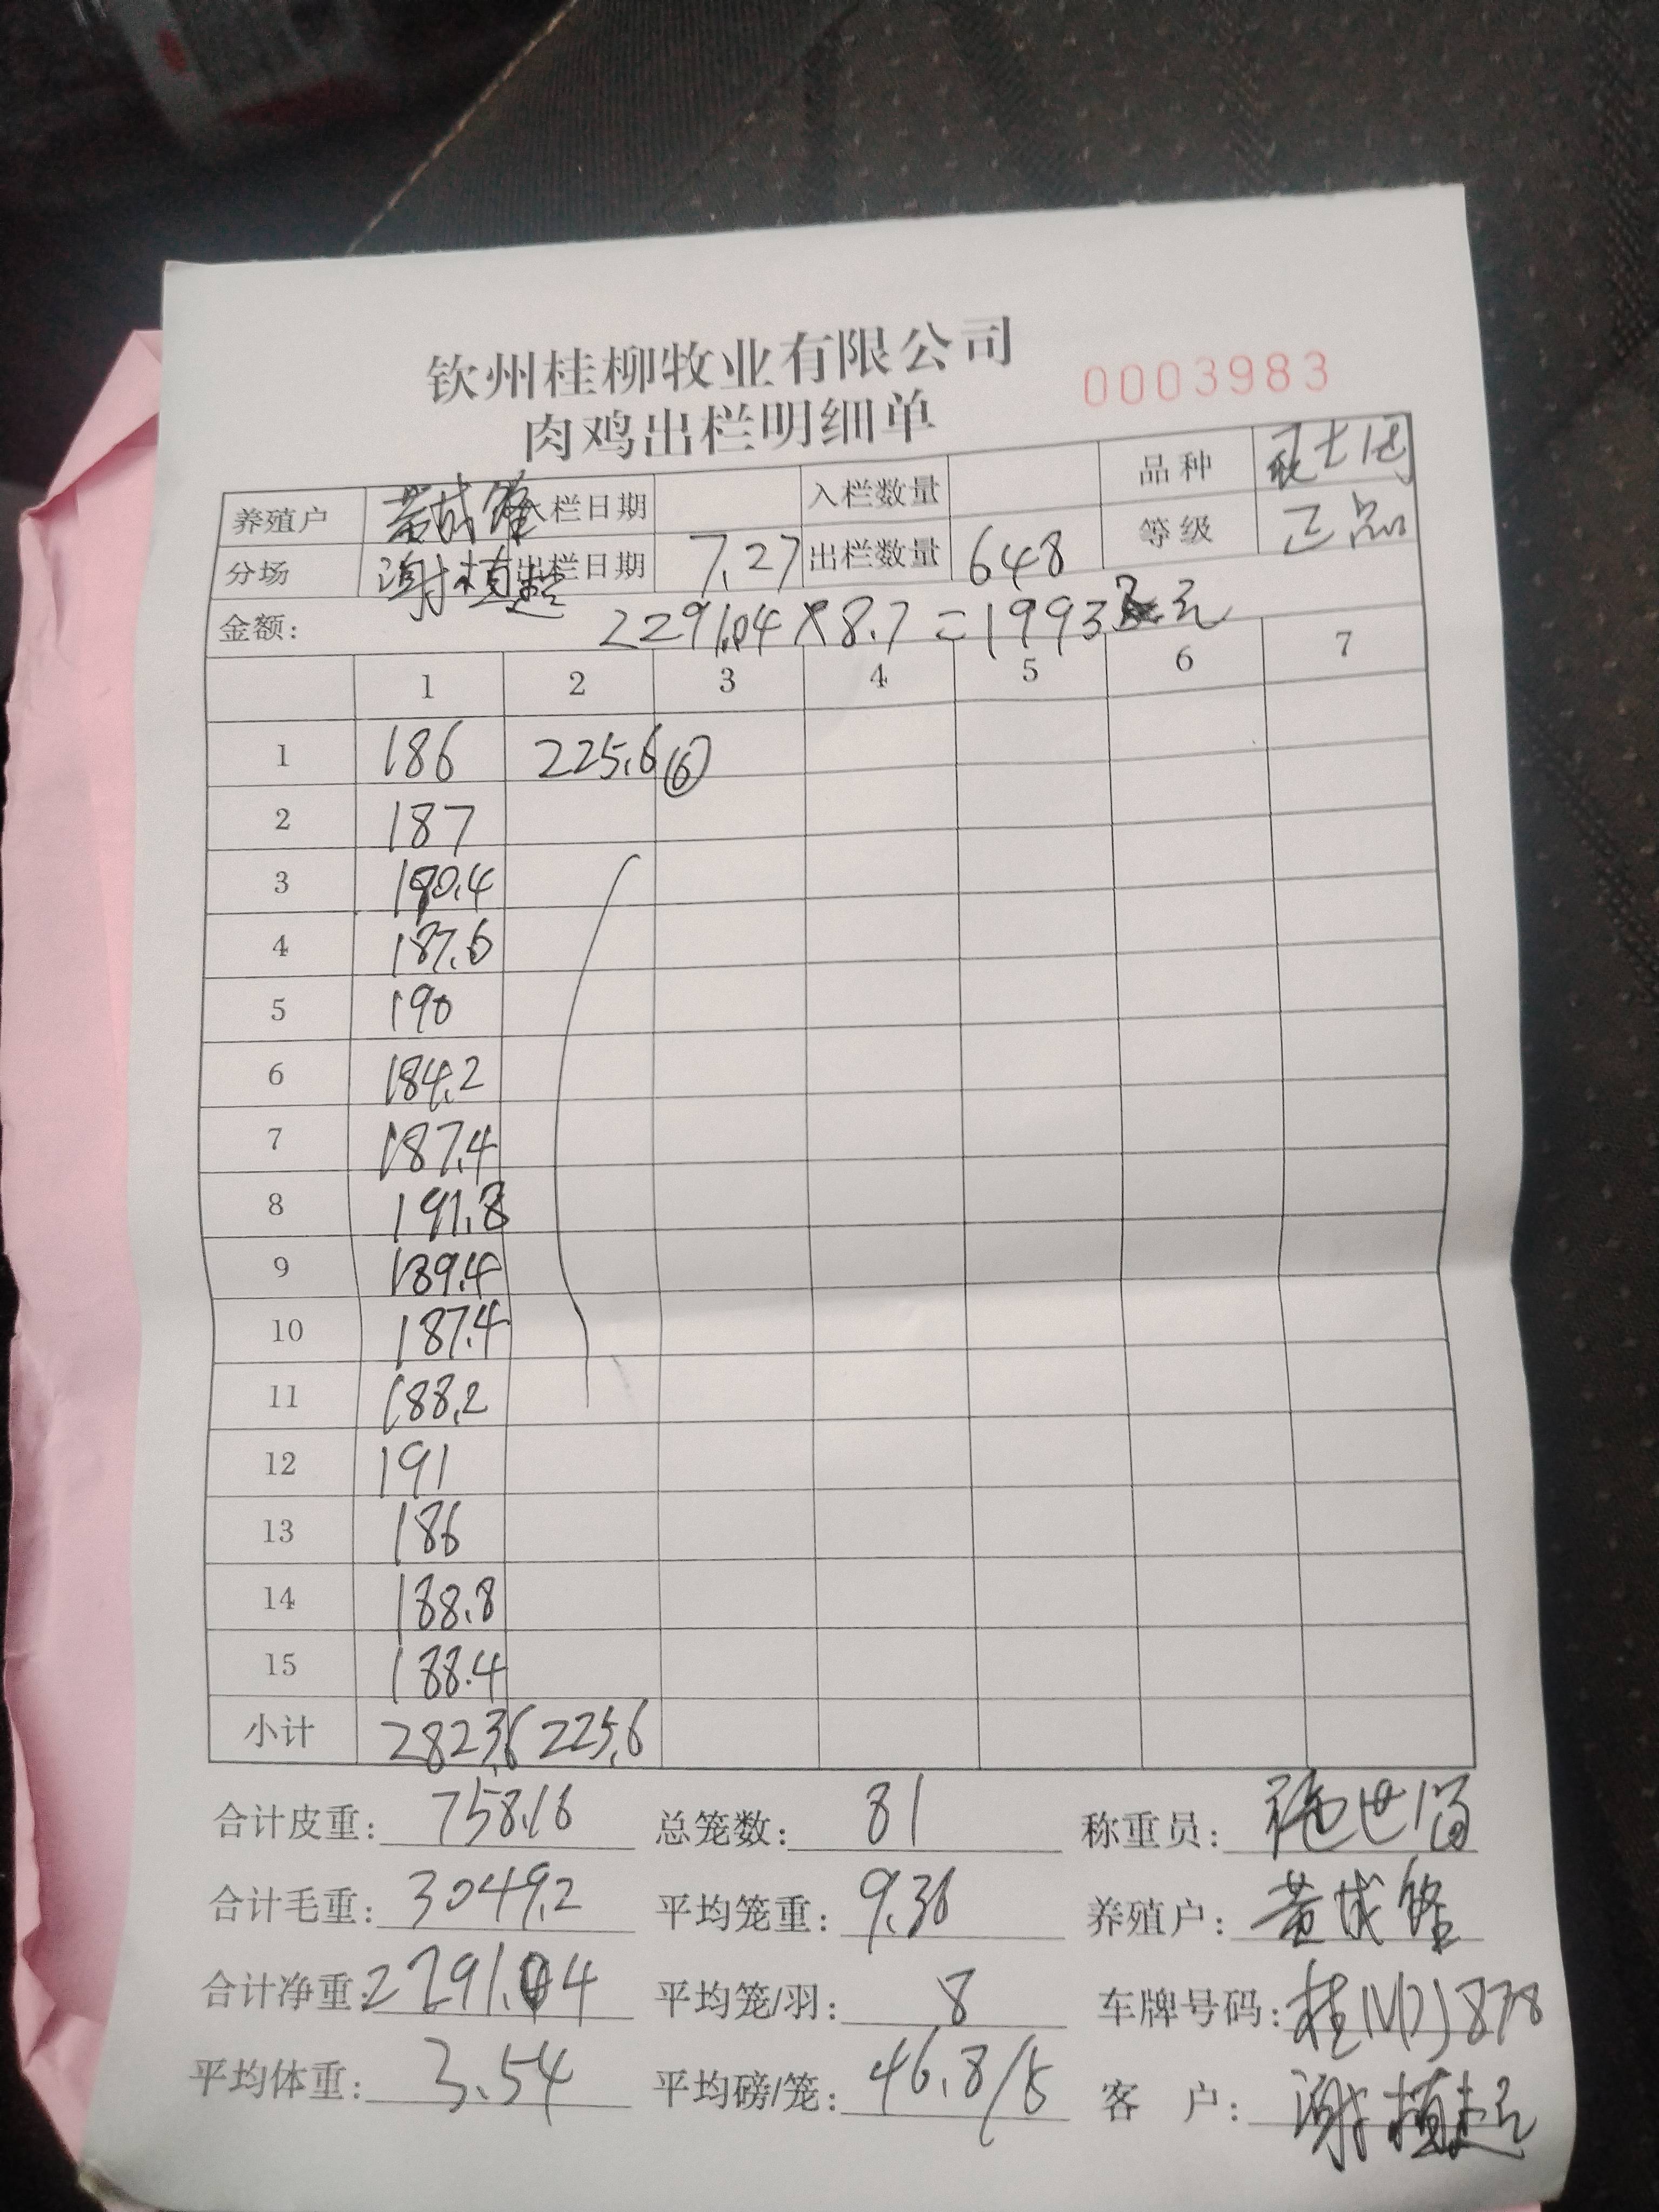 钦州桂柳牧业有限公司
肉鸡出栏明细单 0003983
养殖户 黄成锋 入栏日期 入栏数量 品种
分场 谢植超 出栏日期 7.27 出栏数量 648 等级 正品
金额: 2291.04×8.7=19933元
1 2 3 4 5 6 7
1 186 225.6 ⑥
2 187
3 190.4
4 187.6
5 190
6 184.2
7 187.4
8 191.8
9 189.4
10 187.4
11 188.2
12 191
13 186
14 188.8
15 188.4
小计 2823.6 225.6
合计皮重: 758.16 总笼数: 81 称重员:
合计毛重: 3049.2 平均笼重: 9.36 养殖户: 黄成锋
合计净重: 2291.04 平均笼/羽: 8 车牌号码:
平均体重: 3.54 平均磅/笼: 46.8/5 客 户: 谢植超